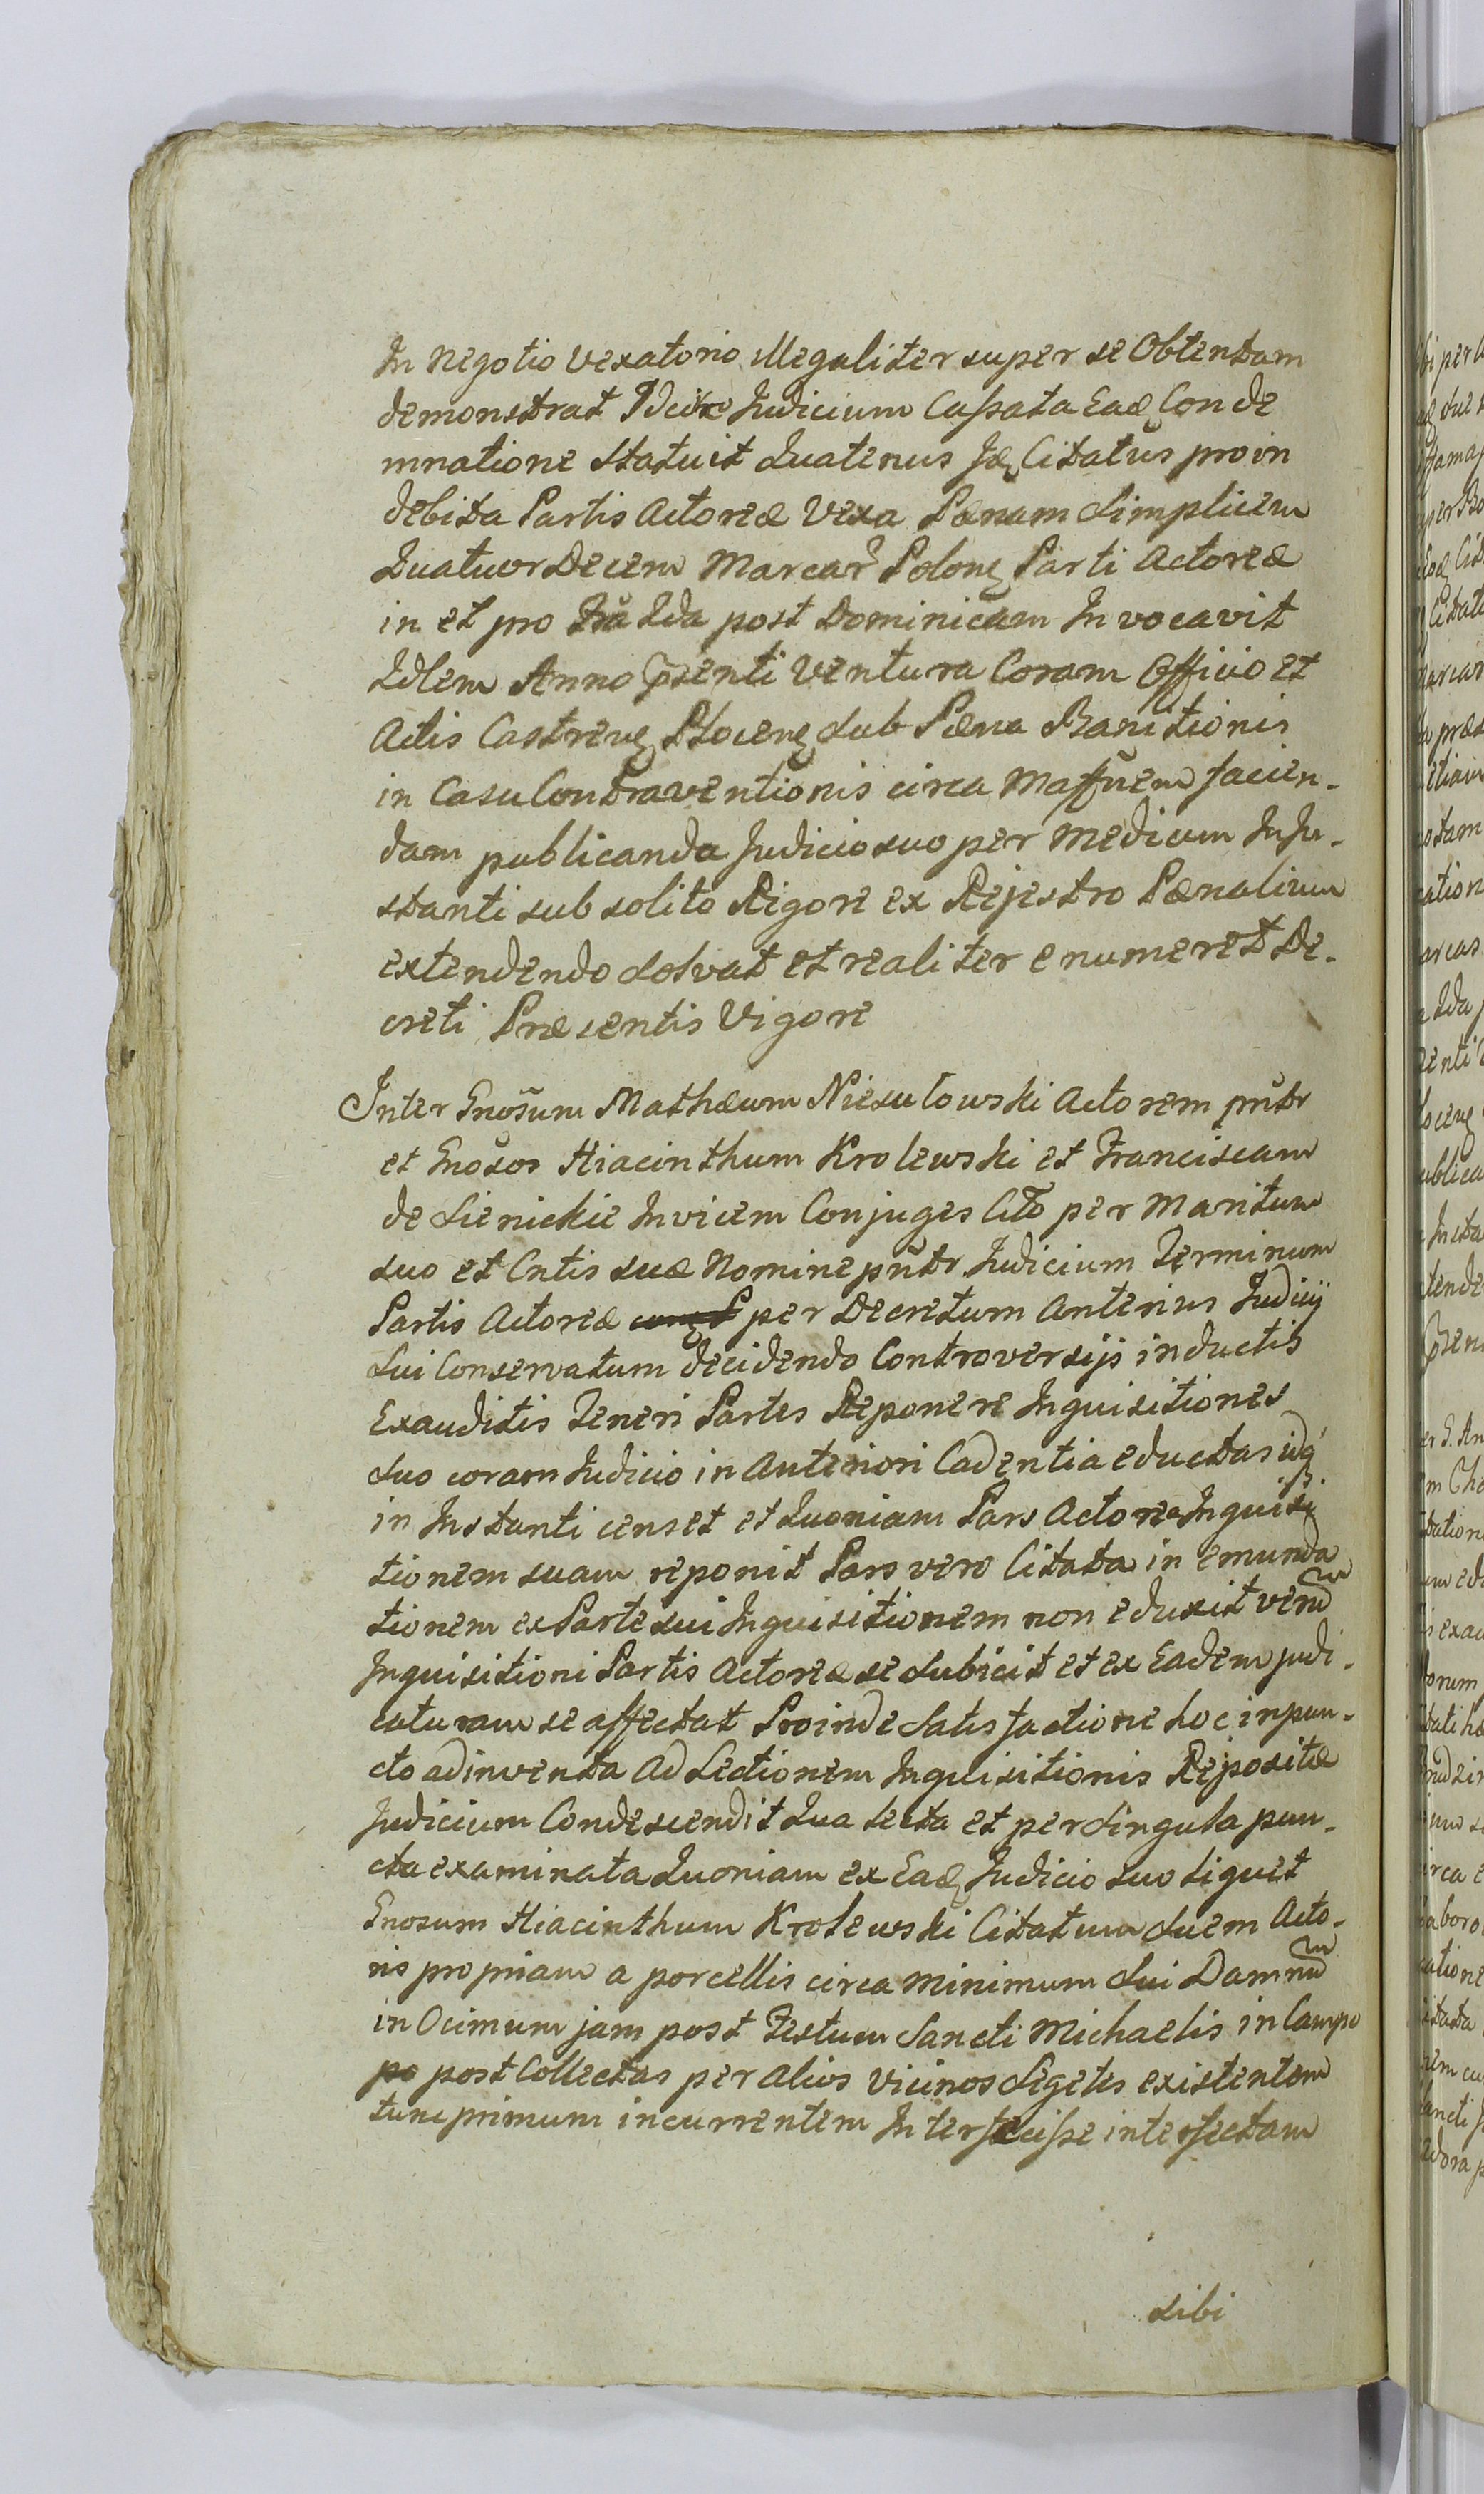 In Negotio Vexatorio illegaliter super se Obtentam
demonstrat Idcirco Judicium Cassata Eadę Conde
mnatione Statuit Quatenus Citatus pro in
debita Partis Actoreæ Vexa Pænam Simplicem
Quatuor Decem Marcar̃ Polonę Parti Actoreæ
in et pro 2da post Dominicam Invocavit
Idem Anno p̃senti Ventura Coram Officio et
Actis Castrenę Plocenę Sub Pæna Banitionis
in Casu Contraventionis circa facien-
dam publicanda Judicio suo per Medium In In-
stanti sub solito Rigore ex Rejestro Pænalium
extendendo Solvat et realiter enumeret De-
creti Præsentis Vigore
Inter Gnosum Mathæum Niesułowski Actorem pñtr
et Gnosos Hiacinthum Krolewski et Franciscam
de Sienickie Invicem Conjuges Citõ per Maritum
suo et Cntis suæ Nomine pñtr Judicium Terminum
Partis Actoreæ per Decretum Anterius Judicij
Sui Conservatum decidendo Controversijs inductis
Exauditis Teneri Partes Reponere Inquisitiones
Suo coram Judicio in Anteriori Cadentia eductas idq
in Instanti censet et Quoniam Pars Actorea Inquisi
tionem suam reponit Pars vero Citata in emunda
tionem ex Parte sui Inquisitionem non eduxit verũ
Inquisitioni Partis Actoreæ se Subicit et ex Eadem judi-
caturam se affectat Proinde Satisfactione hoc in pun-
cto adinventa Ad Lectionem Inquisitionis Repositæ
Judicium Condescendit Qua lecta et per Singula pun-
cta examinata Quoniam ex Eadę Judicio suo liquet
Gnosum Hiacinthum Krolewski Citatum Suem Acto-
ris propriam a porcellis circa minimum Sui Damnũ
in Ocimum jam post Festum Sancti Michaelis in Campo
po post Collectas per alios Vicinos Segetes existentem
tunc primum incurrentem Interfecisse interfectam
Sibi